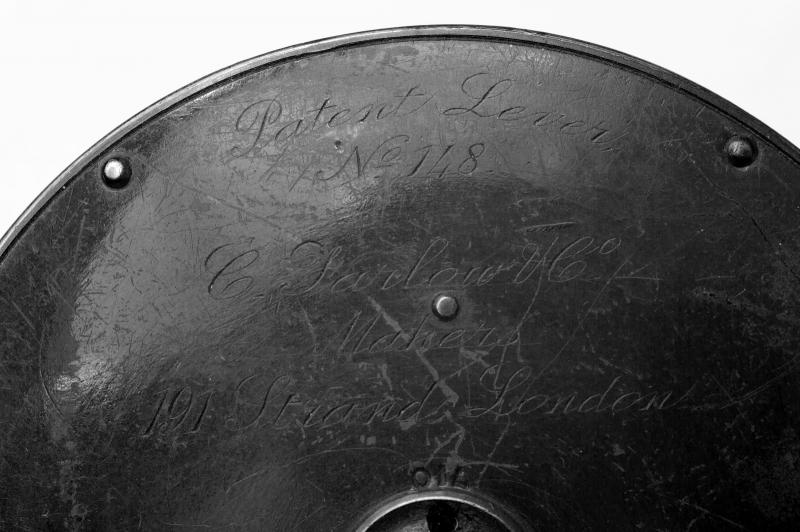 Patent Lever
No 148
C. Farlow & Co
Makers
191 Strand London
OIL